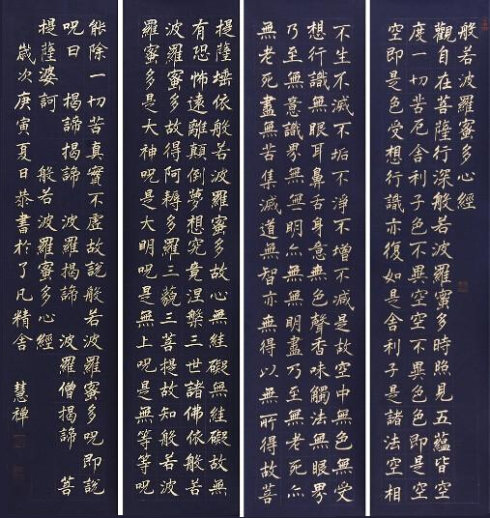 般若波羅蜜多心經
觀自在菩薩行深般若波羅蜜多時照見五蘊皆空
度一切苦厄舍利子色不異空空不異色色即是空
空即是色受想行識亦復如是舍利子是諸法空相
不生不滅不垢不淨不增不減是故空中無色無受
想行識無眼耳鼻舌身意無色聲香味觸法無眼界
乃至無意識界無無明亦無無明盡乃至無老死亦
無老死盡無苦集滅道無智亦無得以無所得故菩
提薩埵依般若波羅蜜多故心無罣礙無罣礙故無
有恐怖遠離顛倒夢想究竟涅槃三世諸佛依般若
波羅蜜多故得阿耨多羅三藐三菩提故知般若波
羅蜜多是大神呪是大明呪是無上呪是無等等呪
能除一切苦真實不虛故說般若波羅蜜多呪即說
呪曰 揭諦揭諦 波羅揭諦 波羅僧揭諦 菩
提薩婆訶 般若波羅蜜多心經
歲次庚寅夏日恭書於了凡精舍 慧禪